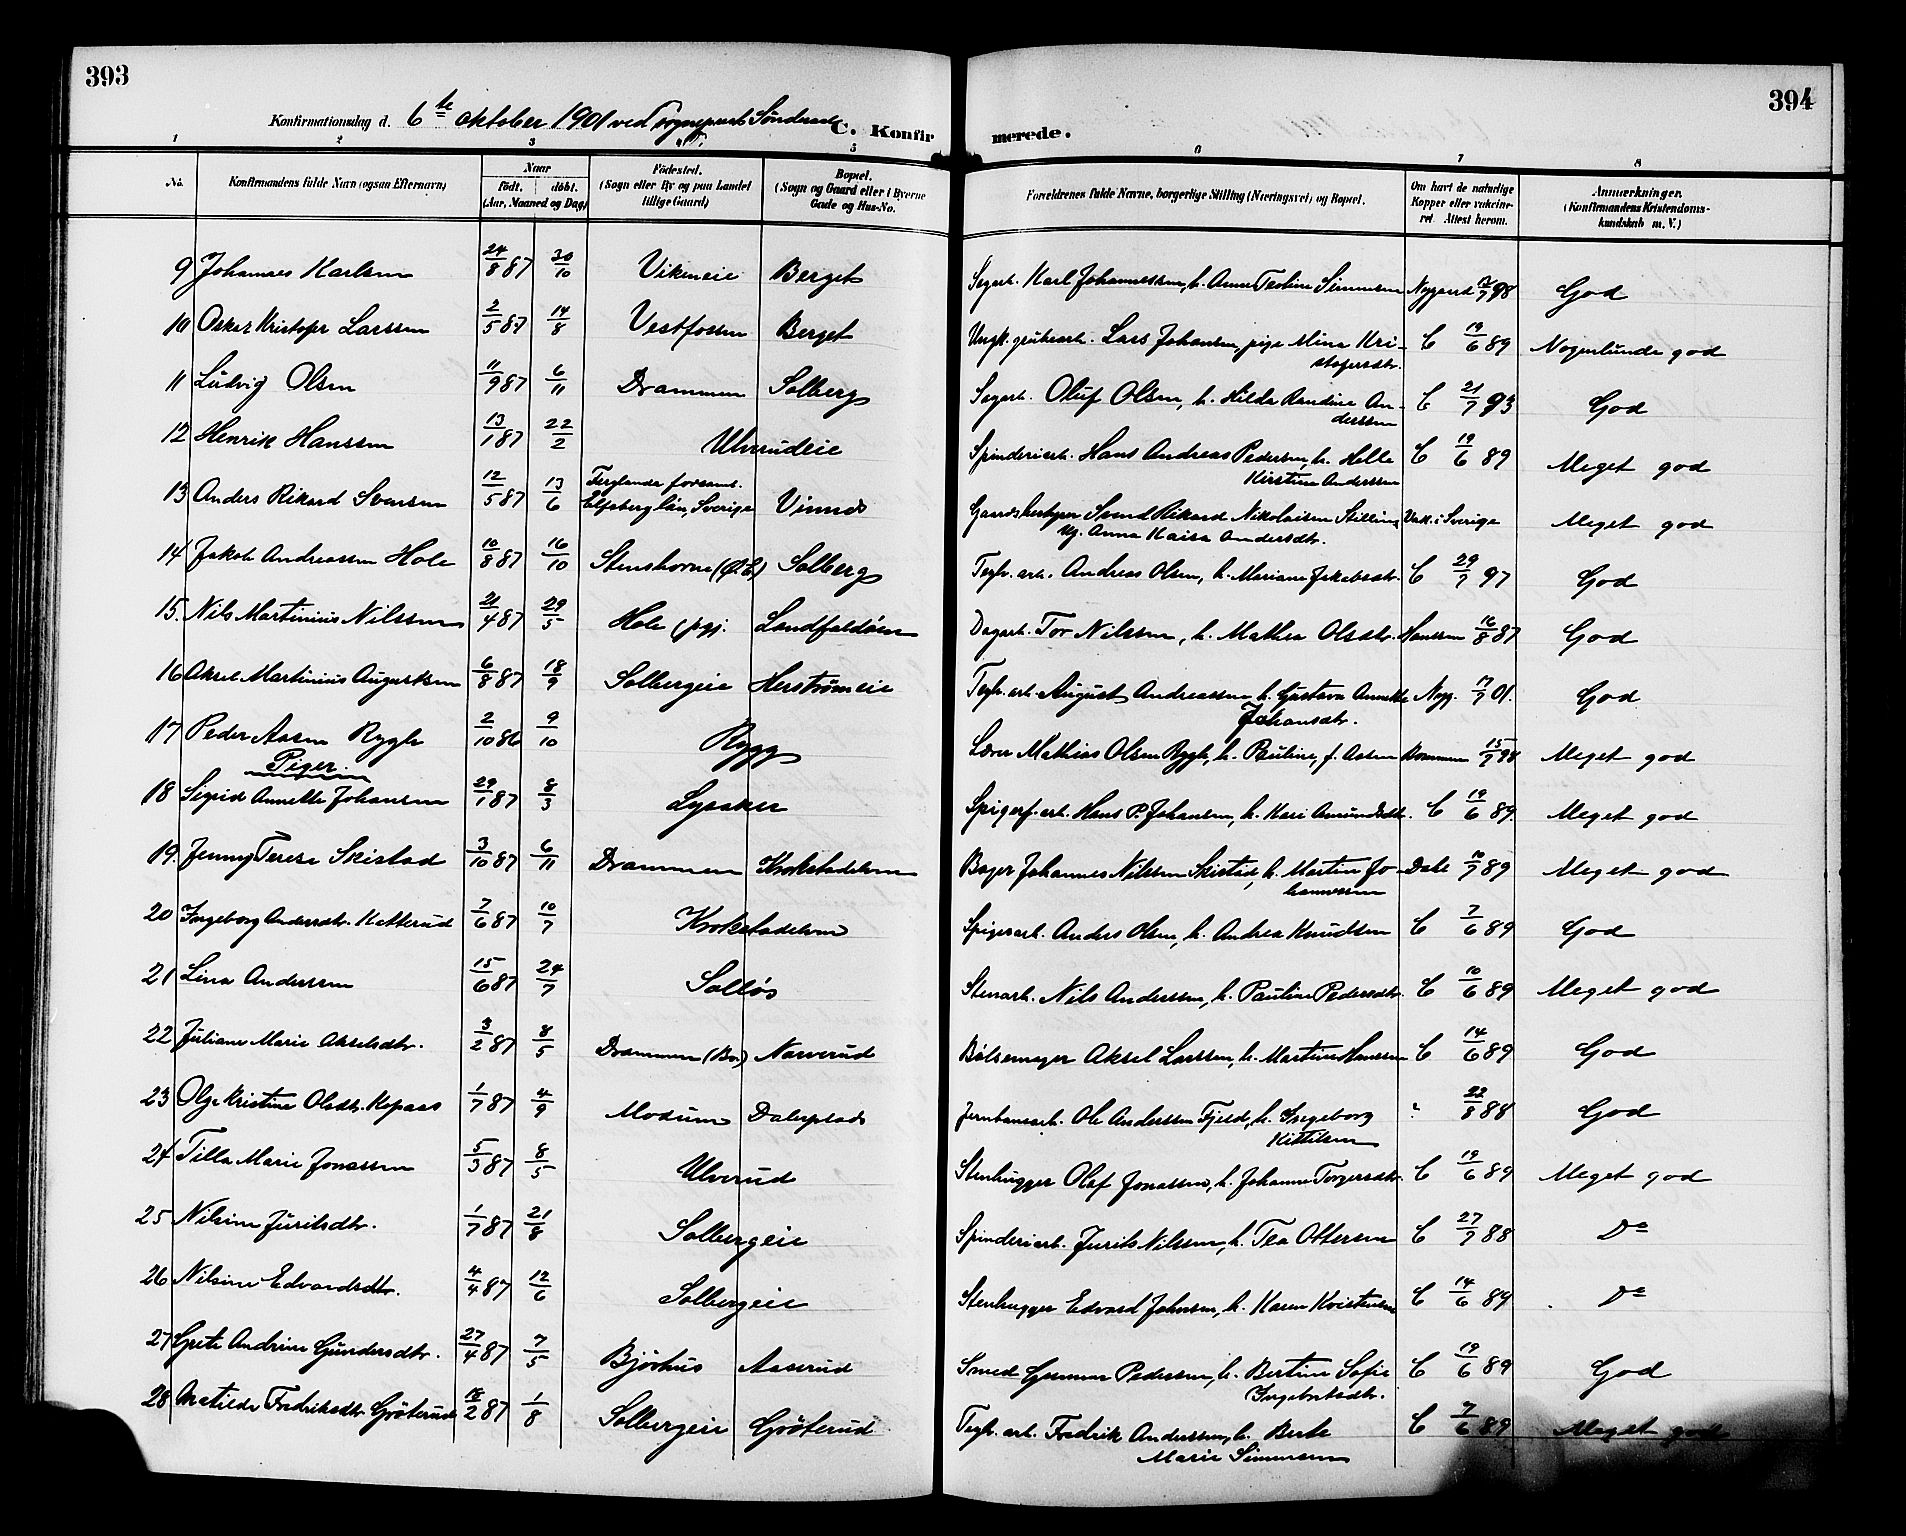 393
394
Konfirmationsdag d. 6te oktober 1901 ved sogneprest
C. Konfirmerede.
1 2 3 5 6 7 8
No. Konfirmandens fulde Navn (ogsaa Efternavn) Naar født. døbt. (Aar, Maaned og Dag) Fødested. (Sogn eller By og paa Landet tillige Gaard) Bopæl. (Sogn og Gaard eller i Byerne Gade og Hus-No. Forældrenes fulde Navne, borgerlige Stilling (Næringsvei) og Bopæl. Om havt de naturlige Kopper eller vakcineret. Attest herom. Anmærkninger. (Konfirmandens Kristendomskundskab m. V.)
9 Johannes Karlsen 24/8 87 30/10 Vikeneie Berget Sagarb. Karl Johannessen, h. Anne Teoline Simensen Nygaard 98 God
10 Oskar Kristofer Larssen 2/5 87 14/8 Vestfossen Berget Ungk. grubearb. Lars Johansen, pige Mina Kristofersdtr. C 19/6 89 Nogenlunde god
11 Ludvig Olsen 11/9 87 6/11 Drammen Solberg Sagarb. Oluf Olsen, h. Hilda Randine Anderssen C 21/7 93 God
12 Henrik Hanssen 13/1 87 22/2 Ulverudeie Spinderiarb. Hans Andreas Pedersen, h. Helle Kirstine Anderssen C 19/6 89 Meget god
13 Anders Rikard Svensen 12/5 87 13/6 Elfsborg län, Sverige Vinnes Gaardsbestyrer Svend Rikard Nikolaisen Stilling Ug. Anna Kaisa Andersdtr. Vak. i Sverige Meget god
14 Jakob Andreassen Hole 10/8 87 16/10 Stenshorne (Ø.E) Solberg Teglv. arb. Andreas Olsen, h. Mariane Jakobsdtr. C 29/7 97 God
15. Nils Martinius Nilssen 21/4 87 29/5 Hole pgj. Landfaldøen Dagarb. Tor Nilssen, h. Mathea Olsdtr. Hanssen 16/8 87 God
16 Aksel Martinius Augustsen 6/8 87 18/9 Solbergeie Herstrømeie Teglv. arb. August Andreassen h. Gustava Annette Johansdtr. Nyg. 01. God
17 Peder Aasen Rygh 2/10 86 9/10 Rygg Lærer Mathias Olsen Rygh, h. Pauline, f. Aasen 98 Meget god
Piger.
18 Sigrid Annette Johansen 29/1 87 8/3 Lysaker Spigerf. arb. Hans P. Johansen, h. Kari Amundsdtr. C 19/6 89 Meget god
19. Jenny Terese Skistad 3/10 87 6/11 Drammen Krokstadelven Bager Johannes Nilssen Skistad, h. Martine Johannessen Dahl 89 Meget god
20 Ingeborg Andersdtr. Ketterud 7/6 87 10/7 Krokstadelven Spigerarb. Anders Olsen, h. Andrea Knudsen C 7/6 89 God
21 Lina Anderssen 15/6 87 24/7 Solløs Stenarb. Nils Anderssen, h. Pauline Pedersdtr. C 10/6 89 Meget god
22 Juliane Marie Akselsdtr. 3/2 87 8/5 Drammen (Br.) Narverud Bølsemager Aksel Larssen, h. Martine Hanssen C 14/6 89 God
23 Olga Kristine Olsdtr. Kopaas 1/7 87 4/9 Modum Dalerplads Jernbanearb. Ole Anderssen Fjeld, h. Ingeborg Kittilsen ? 22/8 88 God
24 Tilla Marie Jonassen 5/3 87 8/5 Ulverud Stenhugger Olaf Jonassen, h. Johanne Torgersdtr. C 19/6 89 Meget god
25 Nilsine Juritsdtr. 1/7 87 21/8 Solbergeie Spinderiarb. Jurits Nilssen, h. Tea Ottersen C 27/7 88 Do
26 Nilsine Edvardsdtr. 4/4 87 12/6 Solbergeie Stenhugger Edvard Johnsen, h. Karen Kristensen C 14/6 89 Do
27 Grete Andrine Gundersdtr. 27/4 87 7/5 Bjørhus Aaserud Smed Gunner Pedersen, h. Bertine Sofie Ingebretsdtr. C 19/6 89 God
28 Matilde Fredriksdtr. Grøterud 18/2 87 1/8 Solbergeie Grøterud Teglv. arb. Fredrik Anderssen, h. Berte Marie Simensen C 7/6 89 Meget god